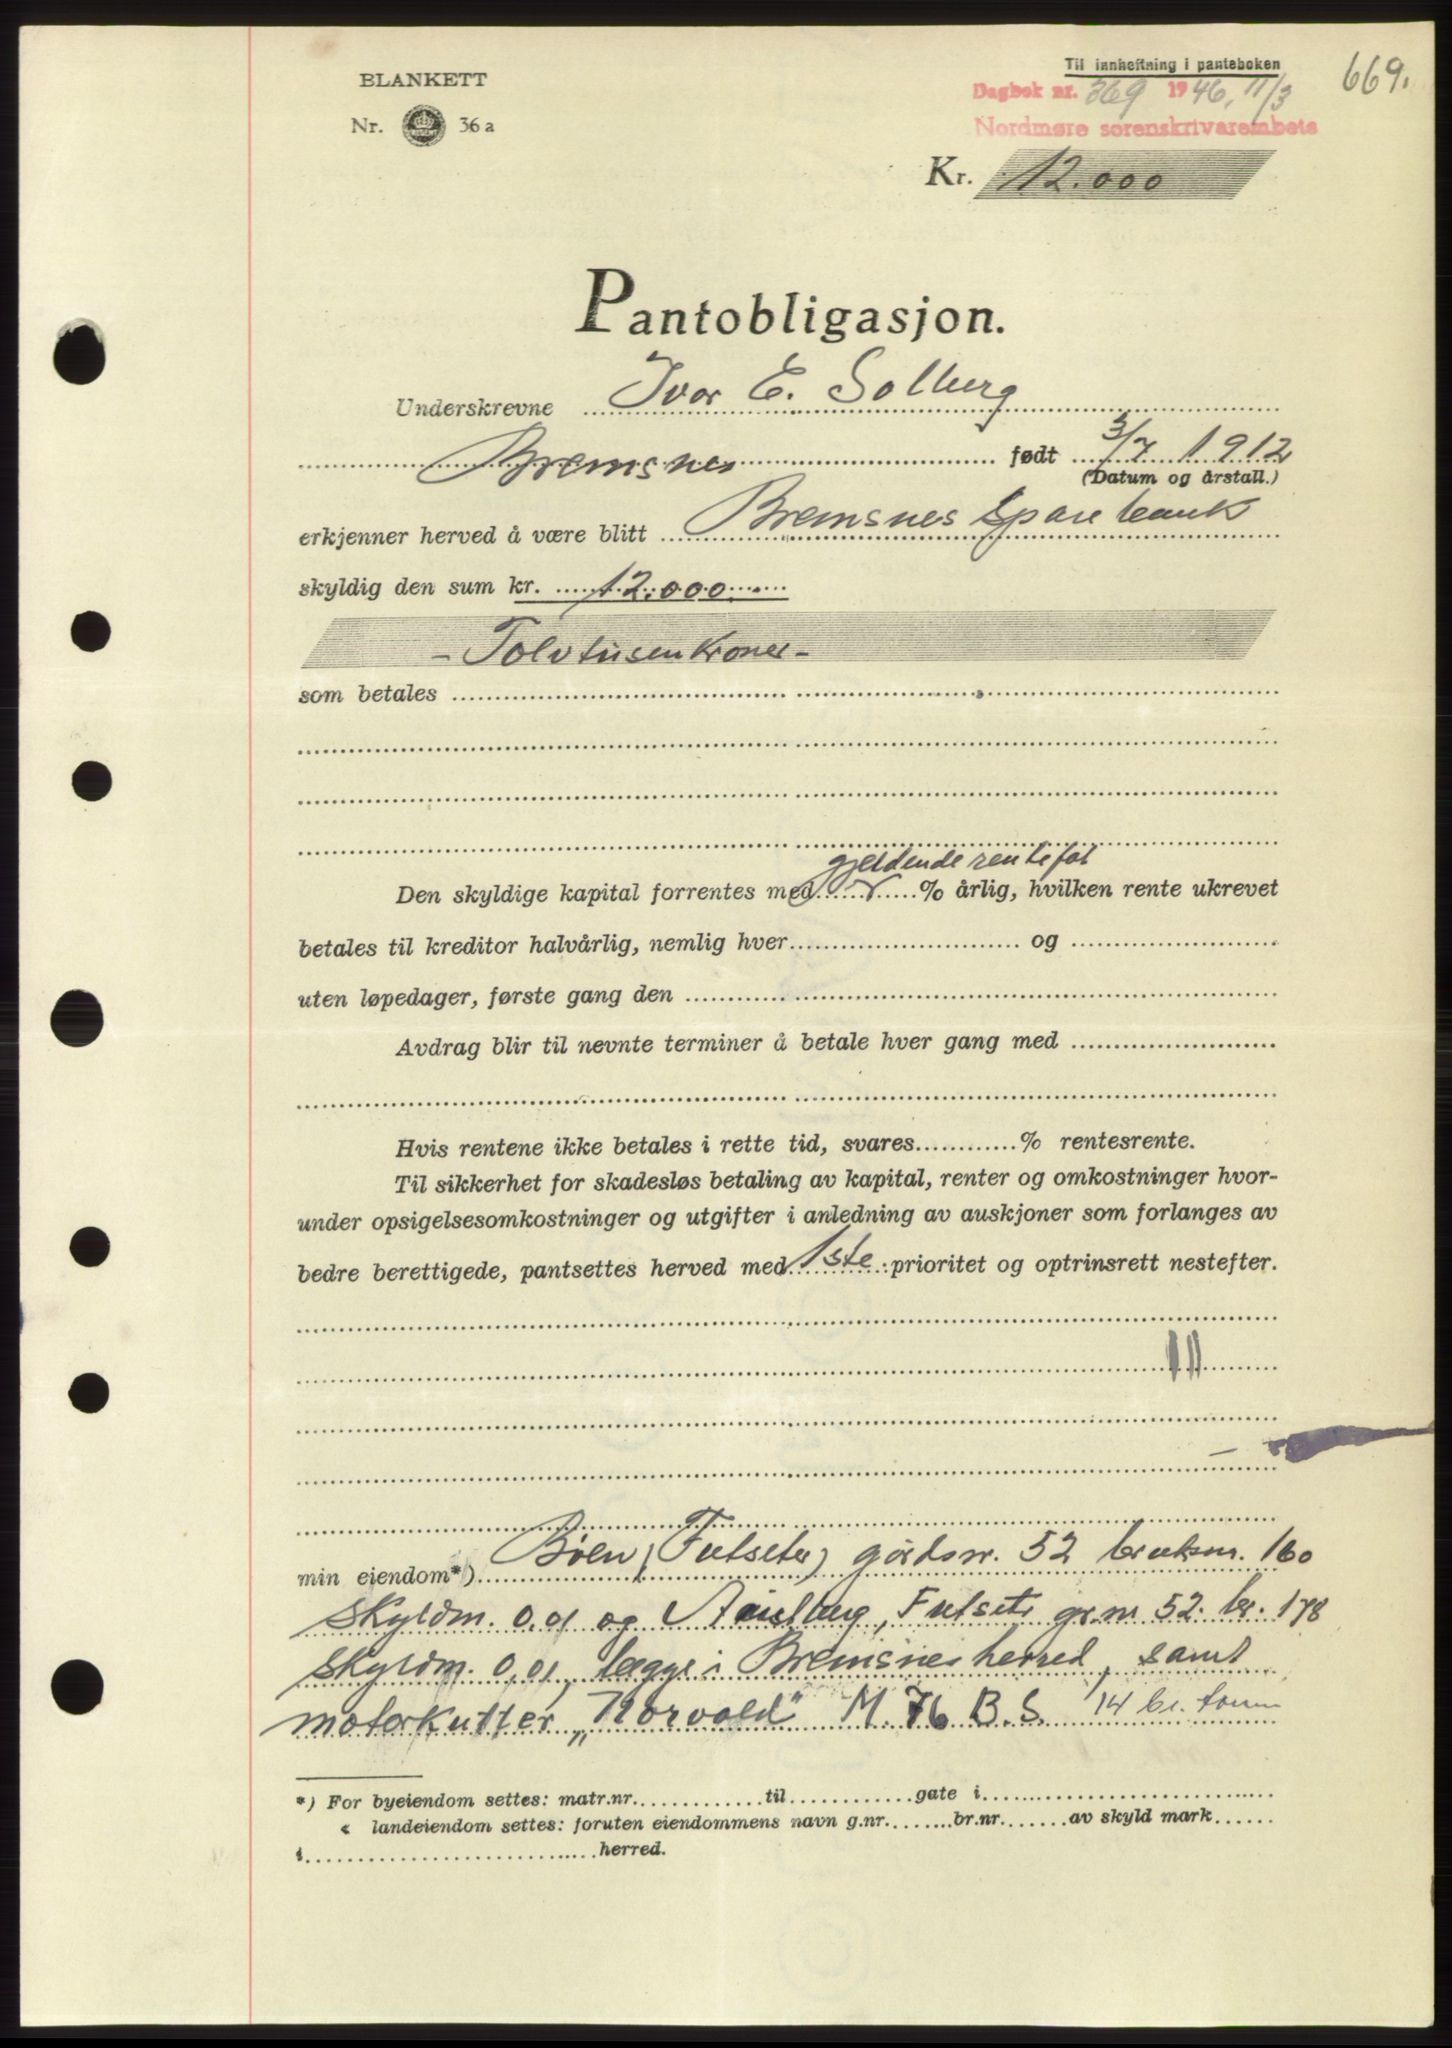 Til innheftning i panteboken
669.
BLANKETT
Dagbok nr. 369 1946, 11/3
Nr. 36 a
Nordmøre sorenskrivarembete
Kr. 12.000
Pantobligasjon.
Underskrevne Ivar E. Solberg
Bremsnes født 3/7 1912
(Datum og årstall.)
erkjenner herved å være blitt Bremsnes Sparebank
skyldig den sum kr. 12.000.-
- Tolvtusenkroner -
som betales
gjeldende rentefot
Den skyldige kapital forrentes med % årlig, hvilken rente ukrevet
betales til kreditor halvårlig, nemlig hver og
uten løpedager, første gang den
Avdrag blir til nevnte terminer å betale hver gang med
Hvis rentene ikke betales i rette tid, svares % rentesrente.
Til sikkerhet for skadesløs betaling av kapital, renter og omkostninger hvor-
under opsigelsesomkostninger og utgifter i anledning av auskjoner som forlanges av
bedre berettigede, pantsettes herved med 1ste prioritet og optrinsrett nestefter.
min eiendom*) Bøen, (Futseter) gårdsnr. 52 bruksnr. 160
skyldm. 0.01 og Futseter gr.nr 52. br. 178
skyldm. 0,01, begge i Bremsnes herred, samt
motorkutter „Norvald" M. 76 B.S. 14 br. tonn
*) For byeiendom settes: matr.nr. til gate i
« landeiendom settes: foruten eiendommens navn g.nr. br.nr. av skyld mark
i herred.